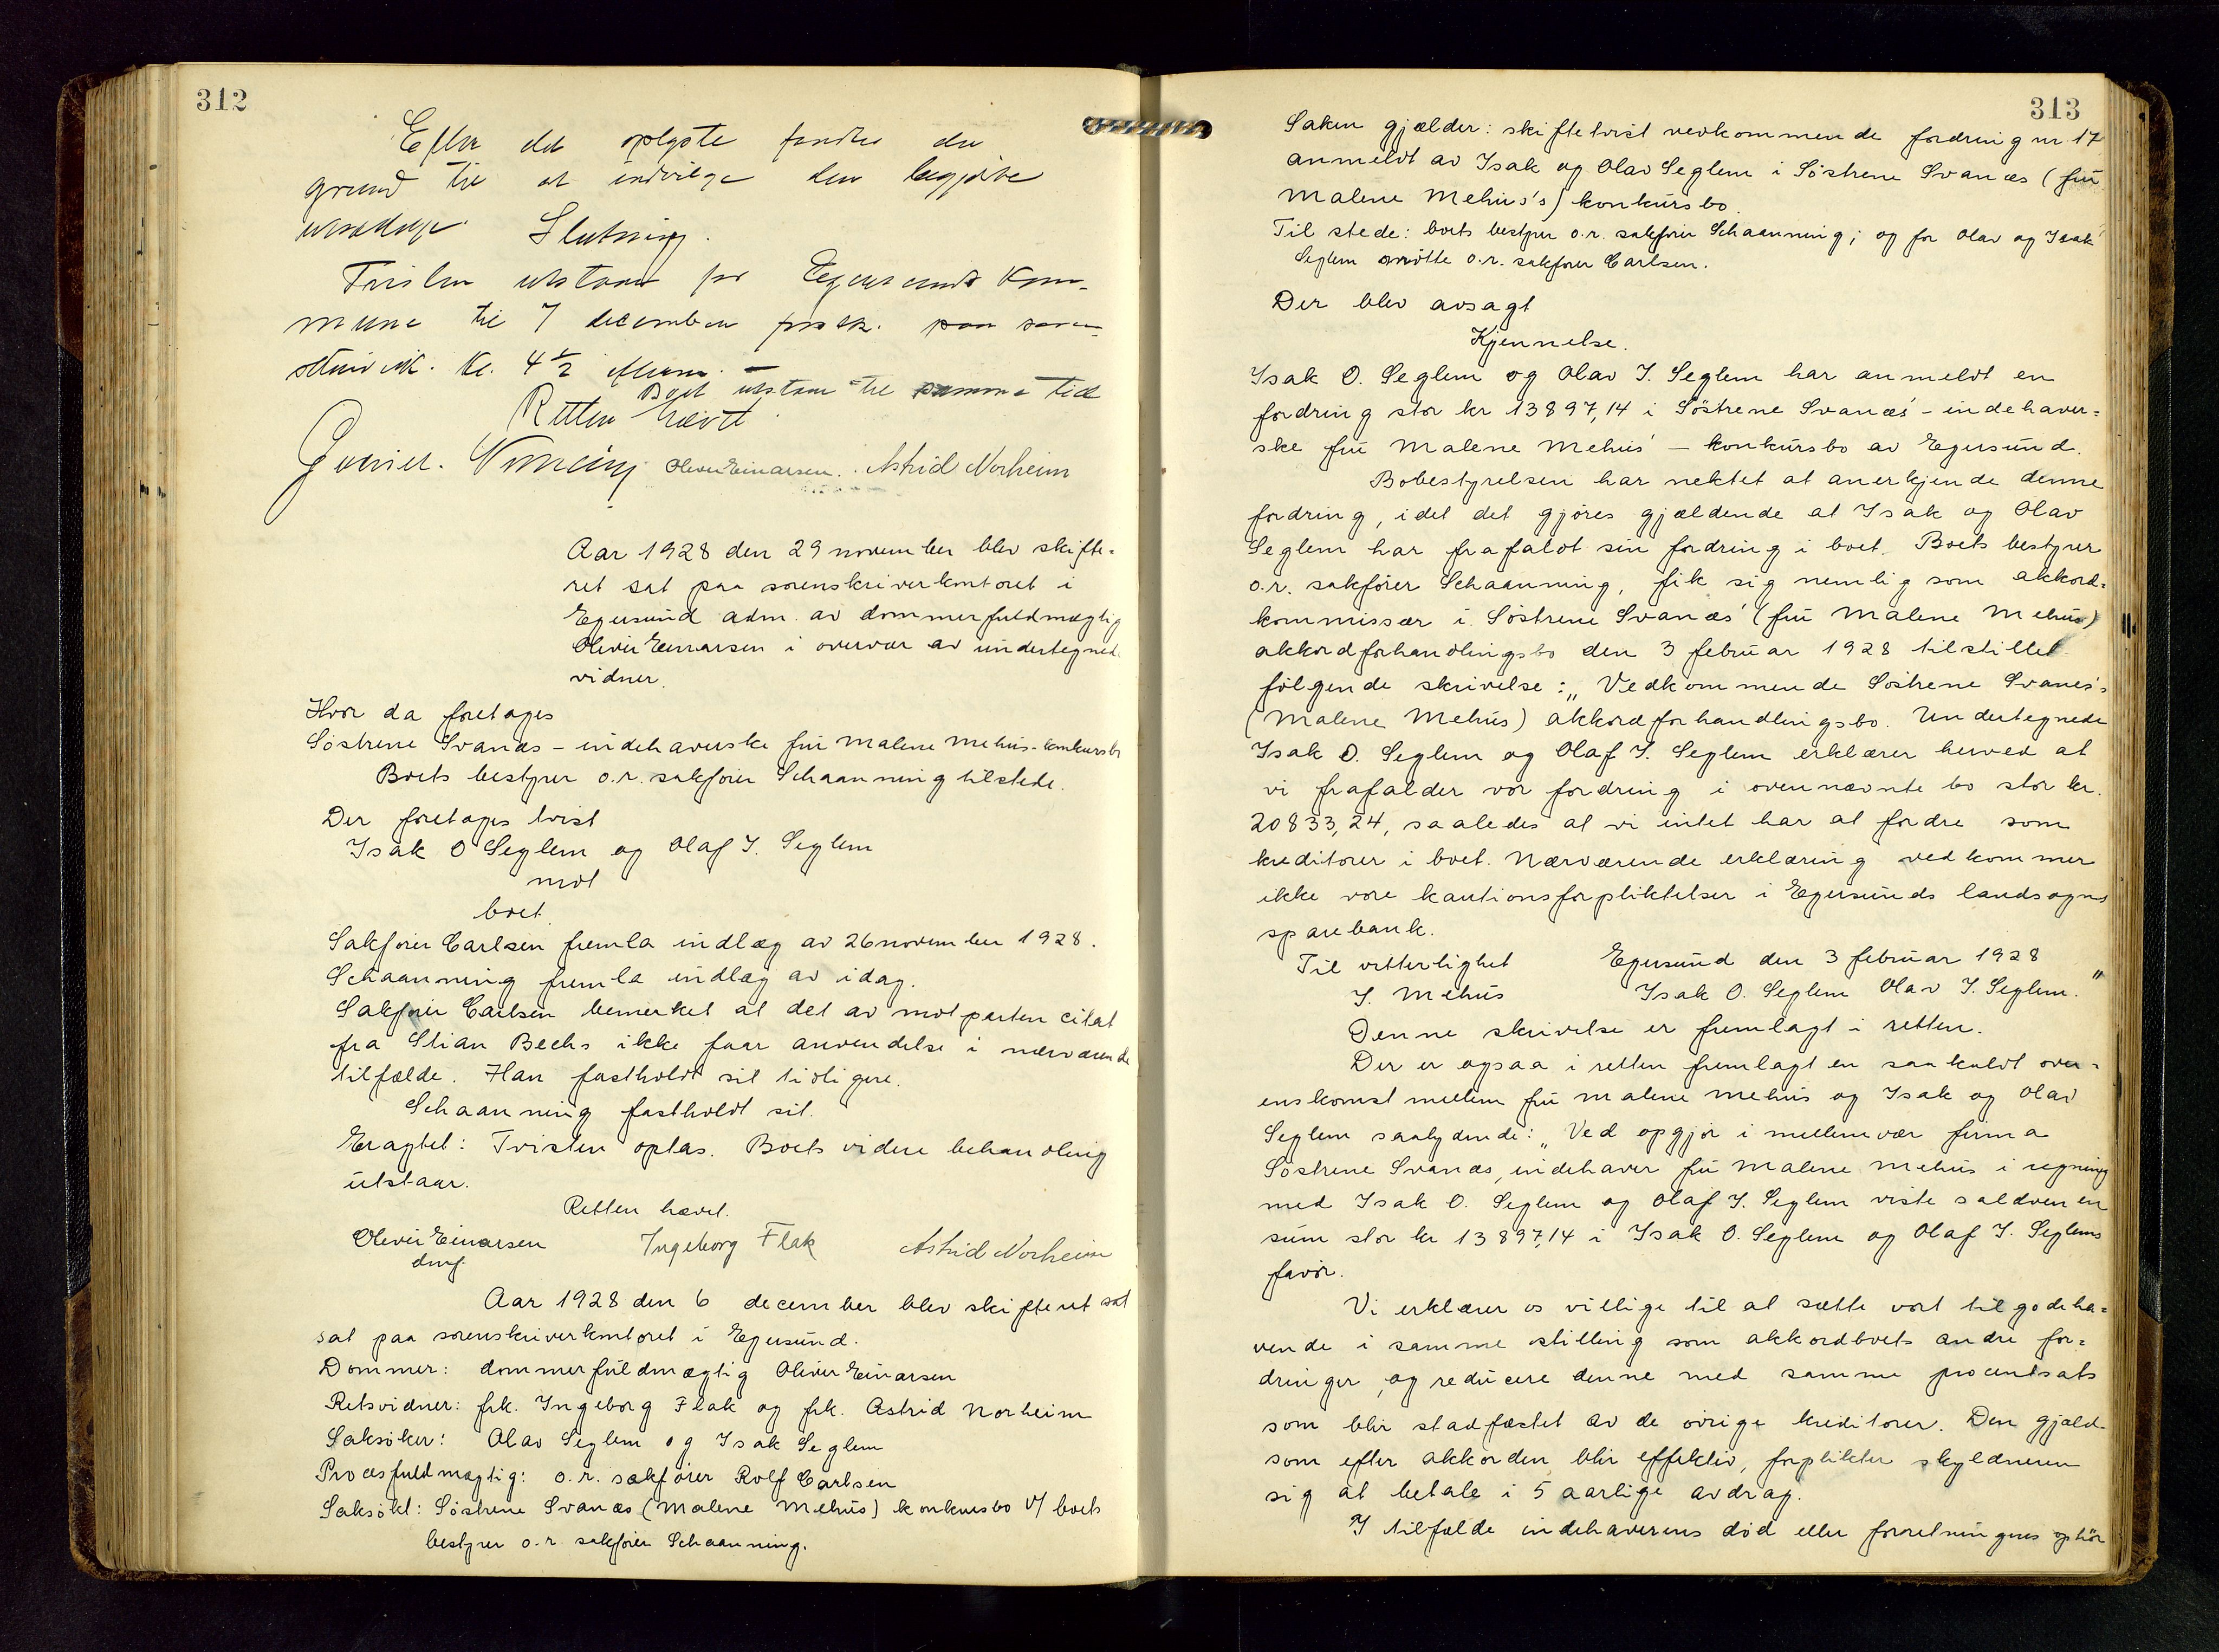 312
Efter det oplyste findes der
grund til at indvilge den begjærte
utsættelse. Slutning.
Fristen utstaar for Egersunds kom-
mune til 7 december
kl. 4½ efterm.
Boet utstaar til samme tid
Retten hævet
Oliver Einarsen. Astrid Norheim
Aar 1928 den 29 november blev skifte=
ret sat paa sorenskriverkontoret i
Egersund adm. av dommerfuldmægtig
Oliver Einarsen i overvær av undertegnede
vidner.
Hvor da foretages
Söstrene Svanæs - indehaverske fru Malene Mehus - konkursbo
Boets bestyrer o.r. sakförer Schaanning tilstede.
Der foretages tvist
Isak O Seglem og Olaf I. Seglem
mot
boet.
Sakförer Carlsen fremla indlæg av 26 november 1928.
Schaanning fremla indlæg av idag.
Sakförer Carlsen bemerket at det av motparten citat
fra Stian Bechs ikke faar anvendelse i nærværende
tilfælde. Han fastholdt sit tidligere.
Schaanning fastholdt sit.
Eragtet: Tvisten optas. Boets videre behandling
utstaar.
Retten hævet.
Oliver Einarsen Ingeborg Flak Astrid Norheim
dmf.
Aar 1928 den 6 december blev skifteret sat
sat paa sorenskriverkontoret i Egersund.
Dommer: dommerfuldmægtig Oliver Einarsen
Retsvidner: frk. Ingeborg Flak og frk. Astrid Norheim
Saksöker: Olav Seglem og Isak Seglem
Procesfuldmægtig: o.r. sakförer Rolf Carlsen
Saksökt: Söstrene Svanæs (Malene Mehus) konkursbo v/ boets
bestyrer o.r. sakförer Schaanning.
313
Saken gjælder: skiftetvist vedkommende fordring nr 17
anmeldt av Isak og Olav Seglem i Söstrene Svanæs (fru
Malene Mehus's) konkursbo.
Til stede: boets bestyrer o.r. sakförer Schaanning; og for Olav og Isak
Seglem mötte o.r. sakförer Carlsen.
Der blev avsagt
Kjennelse.
Isak O. Seglem og Olav I. Seglem har anmeldt en
fordring stor kr 13897,14 i Söstrene Svanæs' - indehaver=
ske fru Malene Mehus' - konkursbo av Egersund.
Bobestyrelsen har nektet at anerkjende denne
fordring, idet det gjöres gjældende at Isak og Olav
Seglem har frafaldt sin fordring i boet. Boets bestyrer
o.r. sakförer Schaanning, fik sig nemlig som akkord=
kommissær i Söstrene Svanæs' (fru Malene Mehus)
akkordforhandlingsbo den 3 februar 1928 tilstillet
fölgende skrivelse: „Vedkommende Söstrene Svanes's
(Malene Mehus) akkordforhandlingsbo. Undertegnede
Isak O. Seglem og Olaf I. Seglem erklærer herved at
vi frafalder vor fordring i ovennævnte bo stor kr.
20833,24, saaledes at vi intet har at fordre som
kreditorer i boet. Nærværende erklæring vedkommer
ikke vore kautionsforpliktelser i Egersunds landsogns
sparebank.
Til vitterlighet Egersund den 3 februar 1928
I. Mehus Isak O. Seglem Olav I. Seglem."
Denne skrivelse er fremlagt i retten.
Der er ogsaa i retten fremlagt en saakaldt over=
enskomst mellem fru Malene Mehus og Isak og Olav
Seglem saalydende: „Ved opgjör i mellemvær firma
Söstrene Svanæs, indehaver fru Malene Mehus i regning
med Isak O. Seglem og Olaf I. Seglem viste saldoen en
sum stor kr 13897,14 i Isak O. Seglem og Olaf I. Seglems
favör.
Vi erklærer os villige til at sætte vort tilgodeha=
vende i samme stilling som akkordboets andre for=
dringer, og reducere denne med samme procentsats
som blir stadfæstet av de övrige kreditorer. Den gjæld
som efter akkorden blir effektiv, forplikter skyldneren
sig at betale i 5 aarlige avdrag.
I tilfælde indehaverens död eller forretningens ophör